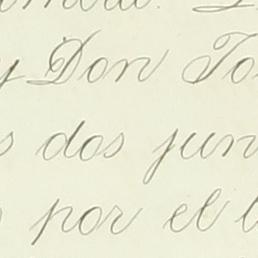 y Don To
dos jun
por el